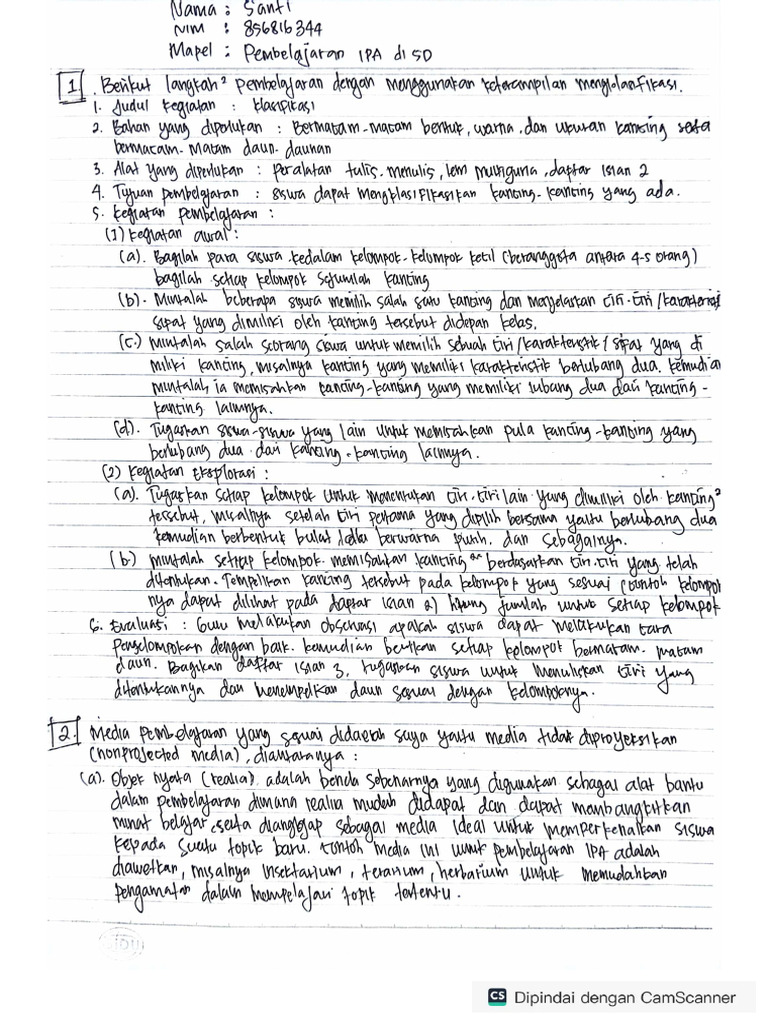 Nama : Santi
NIM : 856816344
Mapel : Pembelajaran IPA di SD
1 . Berikut langkah² pembelajaran dengan menggunakan keterampilan mengklasifikasi.
1. Judul kegiatan : klasifikasi
2. Bahan yang diperlukan : Bermacam-macam bentuk, warna, dan ukuran kancing serta
bermacam-macam daun-daunan
3. Alat yang diperlukan : peralatan tulis-menulis, lem multiguna, daftar isian 2
4. Tujuan pembelajaran : siswa dapat mengklasifikasikan kancing-kancing yang ada.
5. Kegiatan pembelajaran :
(1) kegiatan awal :
(a). Bagilah para siswa kedalam kelompok-kelompok kecil (beranggota antara 4-5 orang)
bagilah setiap kelompok sejumlah kancing
(b). Mintalah beberapa siswa memilih salah satu kancing dan menjelaskan ciri-ciri/karakteristik
sifat yang dimiliki oleh kancing tersebut didepan kelas.
(c.) Mintalah salah seorang siswa untuk memilih sebuah ciri/karakteristik/sifat yang di
miliki kancing, misalnya kancing yang memiliki karakteristik berlubang dua. Kemudian
mintalah ia memisahkan kancing-kancing yang memiliki lubang dua dari kancing-
kancing lainnya.
(d). Tugaskan siswa-siswa yang lain untuk memisahkan pula kancing-kancing yang
berlubang dua dari kancing-kancing lainnya.
(2) kegiatan Eksplorasi :
(a). Tugaskan setiap kelompok untuk menentukan ciri-ciri lain yang dimiliki oleh kancing²
tersebut, misalnya setelah ciri pertama yang dipilih bersama yaitu berlubang dua
kemudian berbentuk bulat berwarna putih, dan sebagainya.
(b) mintalah setiap kelompok memisahkan kancing berdasarkan ciri-ciri yang telah
ditentukan. Tempelkan kancing tersebut pada kelompok yang sesuai (contoh kelompok
nya dapat dilihat pada daftar isian 2) hitung jumlah untuk setiap kelompok
6. Evaluasi : Guru melakukan observasi apakah siswa dapat melakukan cara
pengelompokan dengan baik. kemudian berikan setiap kelompok bermacam-macam
daun. Bagikan daftar isian 3, tugaskan siswa untuk menuliskan ciri yang
ditentukannya dan menempelkan daun sesuai dengan kelompoknya.
2. Media pembelajaran yang sesuai didaerah saya yaitu media tidak diproyeksikan
(nonprojected media), diantaranya :
(a). Objek nyata (realia) adalah benda sebenarnya yang digunakan sebagai alat bantu
dalam pembelajaran dimana realia mudah didapat dan dapat membangkitkan
minat belajar, serta dianggap sebagai media ideal untuk memperkenalkan siswa
kepada suatu topik baru. contoh media ini untuk pembelajaran IPA adalah
diawetkan, misalnya insektarium, terarium, herbarium untuk memudahkan
pengamatan dalam mempelajari topik tertentu.
CS Dipindai dengan CamScanner